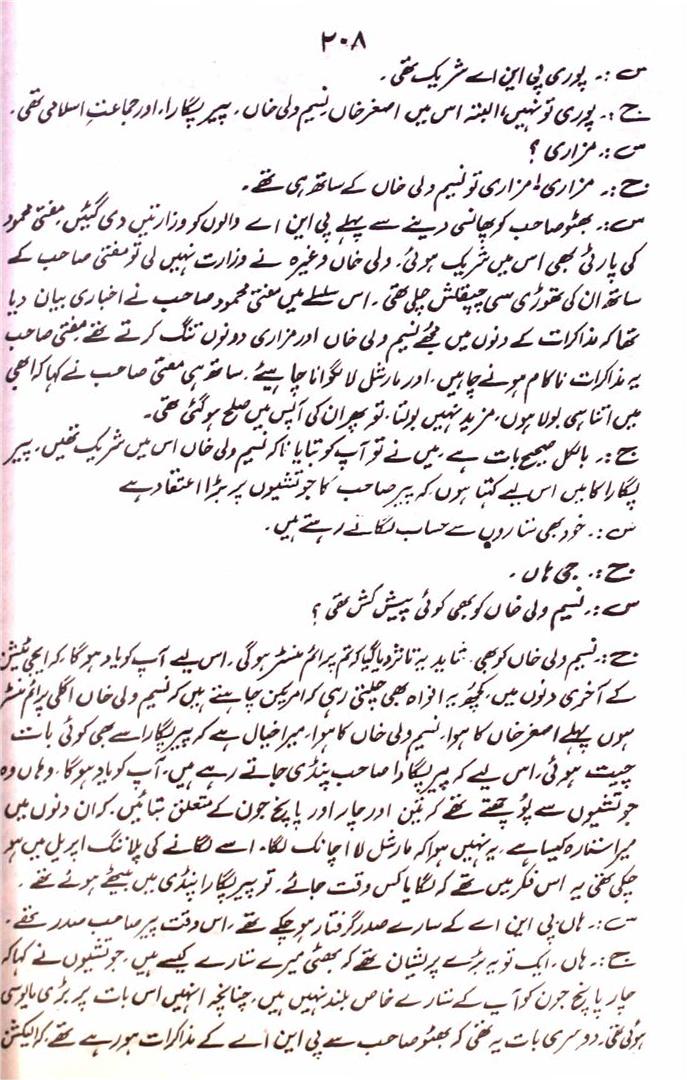 ۲۰۸
س :۔ پوری پی این اے شریک تھی ۔
ج :۔ پوری تو نہیں، البتہ اس میں اصغر خاں، نسیم ولی خاں، پیر پگارا، اور جماعتِ اسلامی تھی ۔
س :۔ مزاری ؟
ج :۔ مزاری! مزاری تو نسیم ولی خاں کے ساتھ ہی تھے ۔
س :۔ بھٹو صاحب کو پھانسی دینے سے پہلے پی این اے والوں کو وزارتیں دی گئیں، مفتی محمود
کی پارٹی بھی اس میں شریک ہوئی، ولی خاں وغیرہ نے وزارت نہیں لی تو مفتی صاحب کے
ساتھ ان کی تھوڑی سی چپقلش چلی تھی ۔ اس سلسلے میں مفتی محمود صاحب نے اخباری بیان دیا
تھا کہ مذاکرات کے دنوں میں مجھے نسیم ولی خاں اور مزاری دونوں تنگ کرتے تھے مفتی صاحب
یہ مذاکرات ناکام ہونے چاہیں، اور مارشل لا لگوانا چاہیئے، ساتھ ہی مفتی صاحب نے کہا کہ ابھی
میں اتنا ہی بولا ہوں، مزید نہیں بولتا، تو پھر ان کی آپس میں صلح ہو گئی تھی ۔
ج :۔ بالکل صحیح بات ہے، میں نے تو آپ کو بتایا نا کہ نسیم ولی خاں اس میں شریک تھیں، پیر
پگارا کا میں اس لیے کہتا ہوں کہ پیر صاحب کا جوتشیوں پر بڑا اعتقاد ہے
س :۔ خود بھی ستاروں سے حساب لگاتے رہتے ہیں ۔
ج :۔ جی ہاں ۔
س :۔ نسیم ولی خاں کو بھی کوئی پیش کش تھی ؟
ج :۔ نسیم ولی خاں کو بھی شاید یہ تاثر دیا گیا کہ تم پرائم منسٹر ہو گی، اس لیے آپ کو یاد ہو گا، کہ ایجی ٹیشن
کے آخری دنوں میں، کچھ یہ افواہ بھی چلتی رہی کہ امریکن چاہتے ہیں کہ نسیم ولی خاں اگلی پرائم منسٹر
ہوں پہلے اصغر خاں کا ہوا، نسیم ولی خاں کا ہوا، میرا خیال ہے کہ پیر پگارا سے بھی کوئی بات
چیت ہوئی، اس لیے کہ پیر پگارا صاحب پنڈی جاتے رہے ہیں، آپ کو یاد ہو گا، وہاں وہ
جوتشیوں سے پوچھتے تھے کہ تین اور چار اور پانچ جون کے متعلق بتائیں، کہ ان دنوں میں
میرا ستارہ کیسا ہے، یہ نہیں ہوا کہ مارشل لا اچانک لگا، اسے لگانے کی پلاننگ اپریل میں ہو
چکی تھی یہ اس فکر میں تھے کہ لگایا کس وقت جائے، تو پیر پگارا پنڈی میں بیٹھے ہوئے تھے ۔
س :۔ ہاں، پی این اے کے سارے صدر گرفتار ہو چکے تھے، اس وقت پیر صاحب صدر تھے ۔
ج :۔ ہاں، ایک تو یہ بڑے پریشان تھے کہ بھئی میرے ستارے کیسے ہیں، جوتشیوں نے کہا کہ
چار پانچ جون کو آپ کے ستارے خاص بلند نہیں ہیں، چنانچہ انہیں اس بات پر بڑی مایوسی
ہوئی تھی، دوسری بات یہ تھی کہ بھٹو صاحب سے پی این اے کے مذاکرات ہو رہے تھے، کہ الیکشن